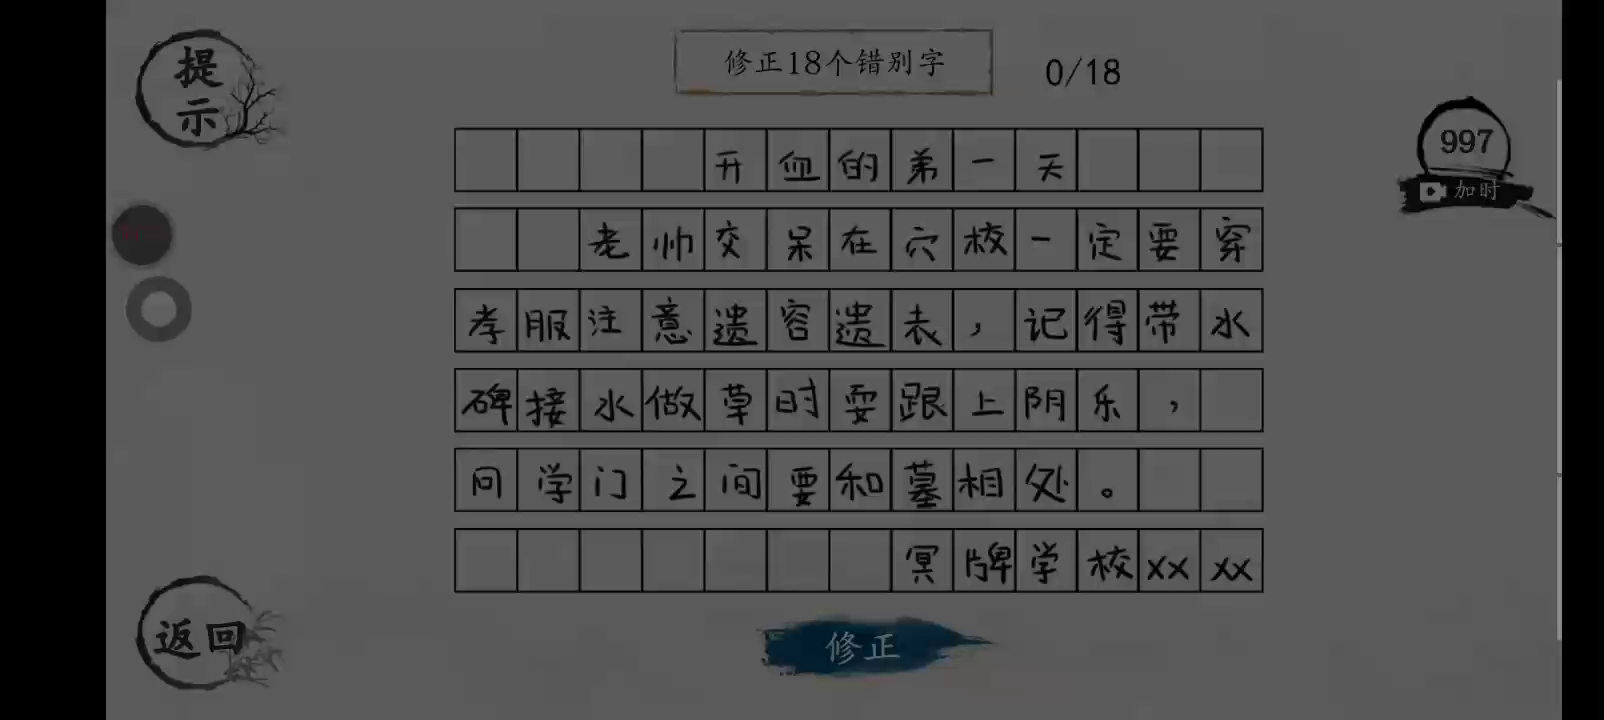 提示
修正18个错别字
0/18
997
加时
开血的弟一天
老帅交呆在穴校一定要穿
孝服注意遗容遗表，记得带水
碑接水做草时耍跟上阴乐，
同学门之间要和墓相处。
冥牌学校xxxx
返回
修正